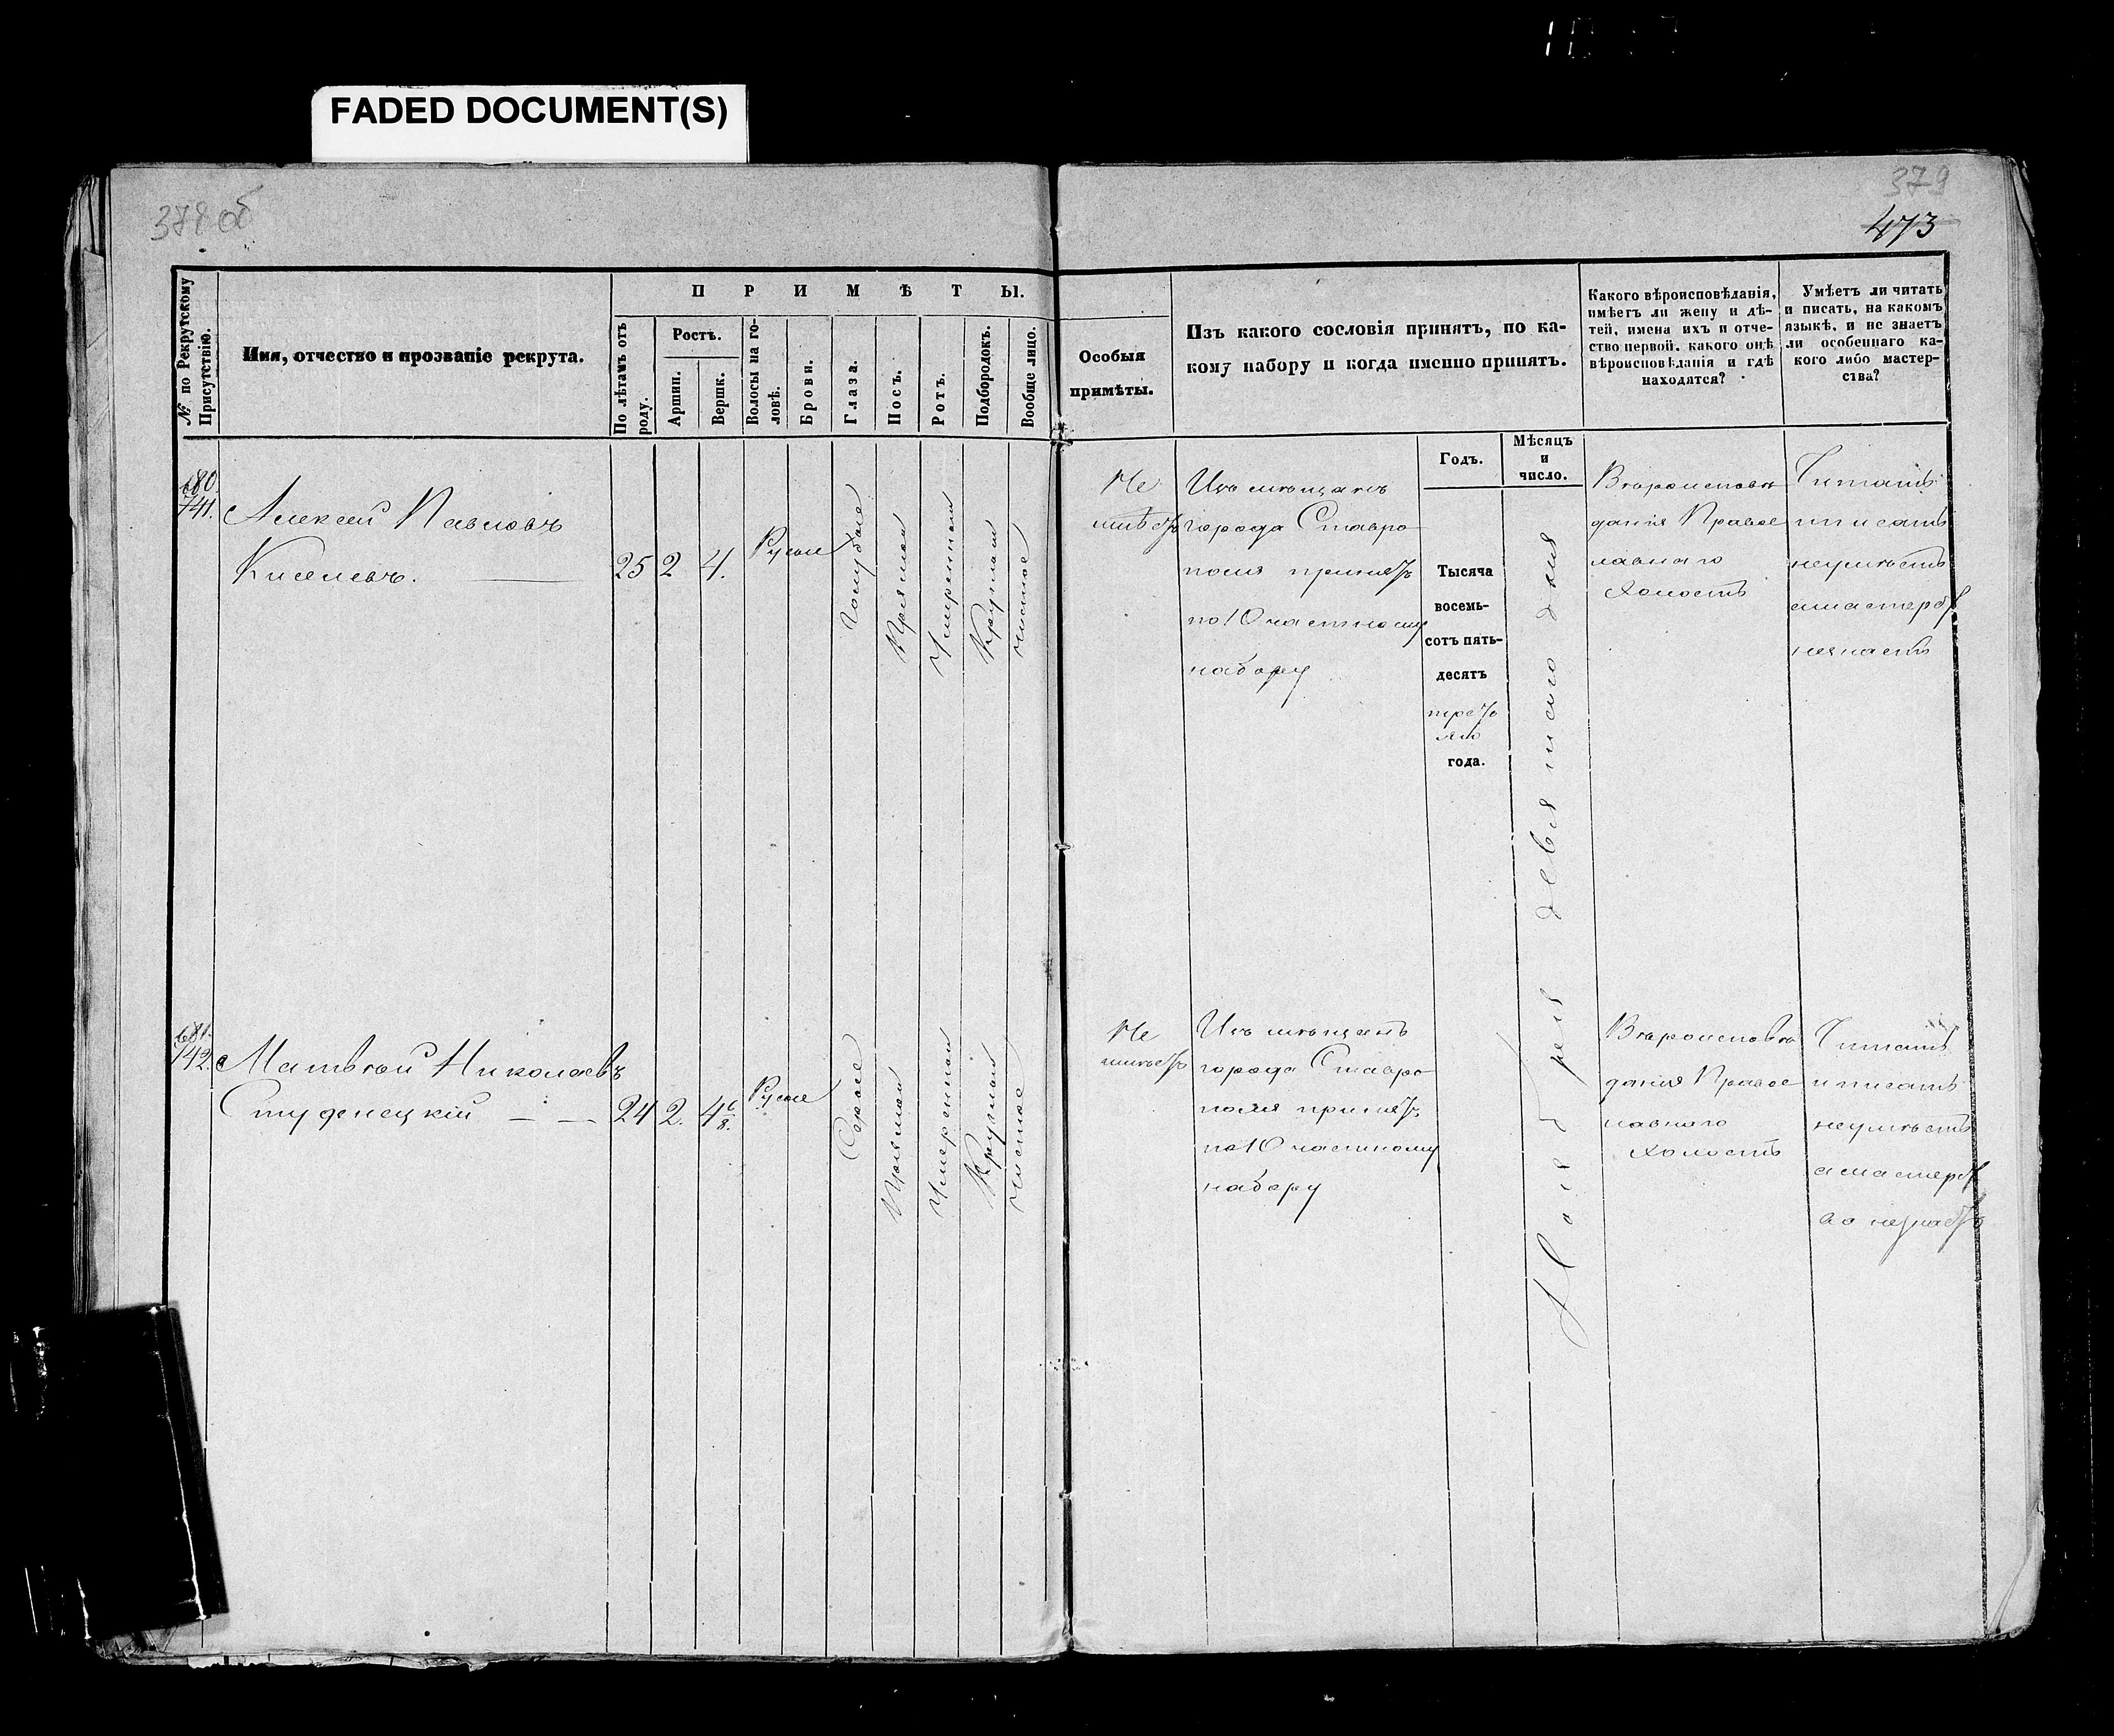 FADED DOCUMENT(S)
378 об
379
473
№ по Рекрутскому Присутствію.
Имя, отчество и прозваніе рекрута.
ПРИМѢТЫ.
По лѣтамъ отъ роду.
Ростъ.
Аршин.
Вершк.
Волосы на головѣ.
Брови.
Глаза.
Носъ.
Ротъ.
Подбородокъ.
Вообще лицо.
Особыя
примѣты.
Изъ какого сословія принятъ, по ка-
кому набору и когда именно принятъ.
Годъ.
Мѣсяцъ
и
число.
Какого вѣроисповѣданія,
имѣетъ ли жену и дѣ-
тей, имена ихъ и отче-
ство первой, какого онѣ
вѣроисповѣданія и гдѣ
находятся?
Умѣетъ ли читать
и писать, на какомъ
языкѣ, и не знаетъ
ли особеннаго ка-
кого либо мастер-
ства?
680.
741.
Алексей Павловъ
Киселевъ.
25
2
4.
Русые
Голубые
Прямой
Умеренной
Круглой
Чистое
Не
имѣетъ
Изъ мещанъ
города Ставро
поля принятъ
по 10 частному
набору
Тысяча
восемь-
сотъ пять-
десятъ
третьяго
года.
Ноября девятнадцато дня
Вероисповѣ
данія Правос
лавнаго
Холостъ
Читать
и писать
неумѣетъ
а мастерств
незнаетъ
681.
742.
Матвей Николаевъ
Студенецкій
24
2.
4 6/8.
Русые
Серые
Прямой
Умеренной
Круглой
Чистое
Не
имеетъ
Изъ мещанъ
города Ставро
поля принятъ
по 10 частному
набору
Вероисповѣ
данія Правос
лавнаго
Холостъ
Читать
и писать
неумѣетъ
а мастерст
ва незнаетъ